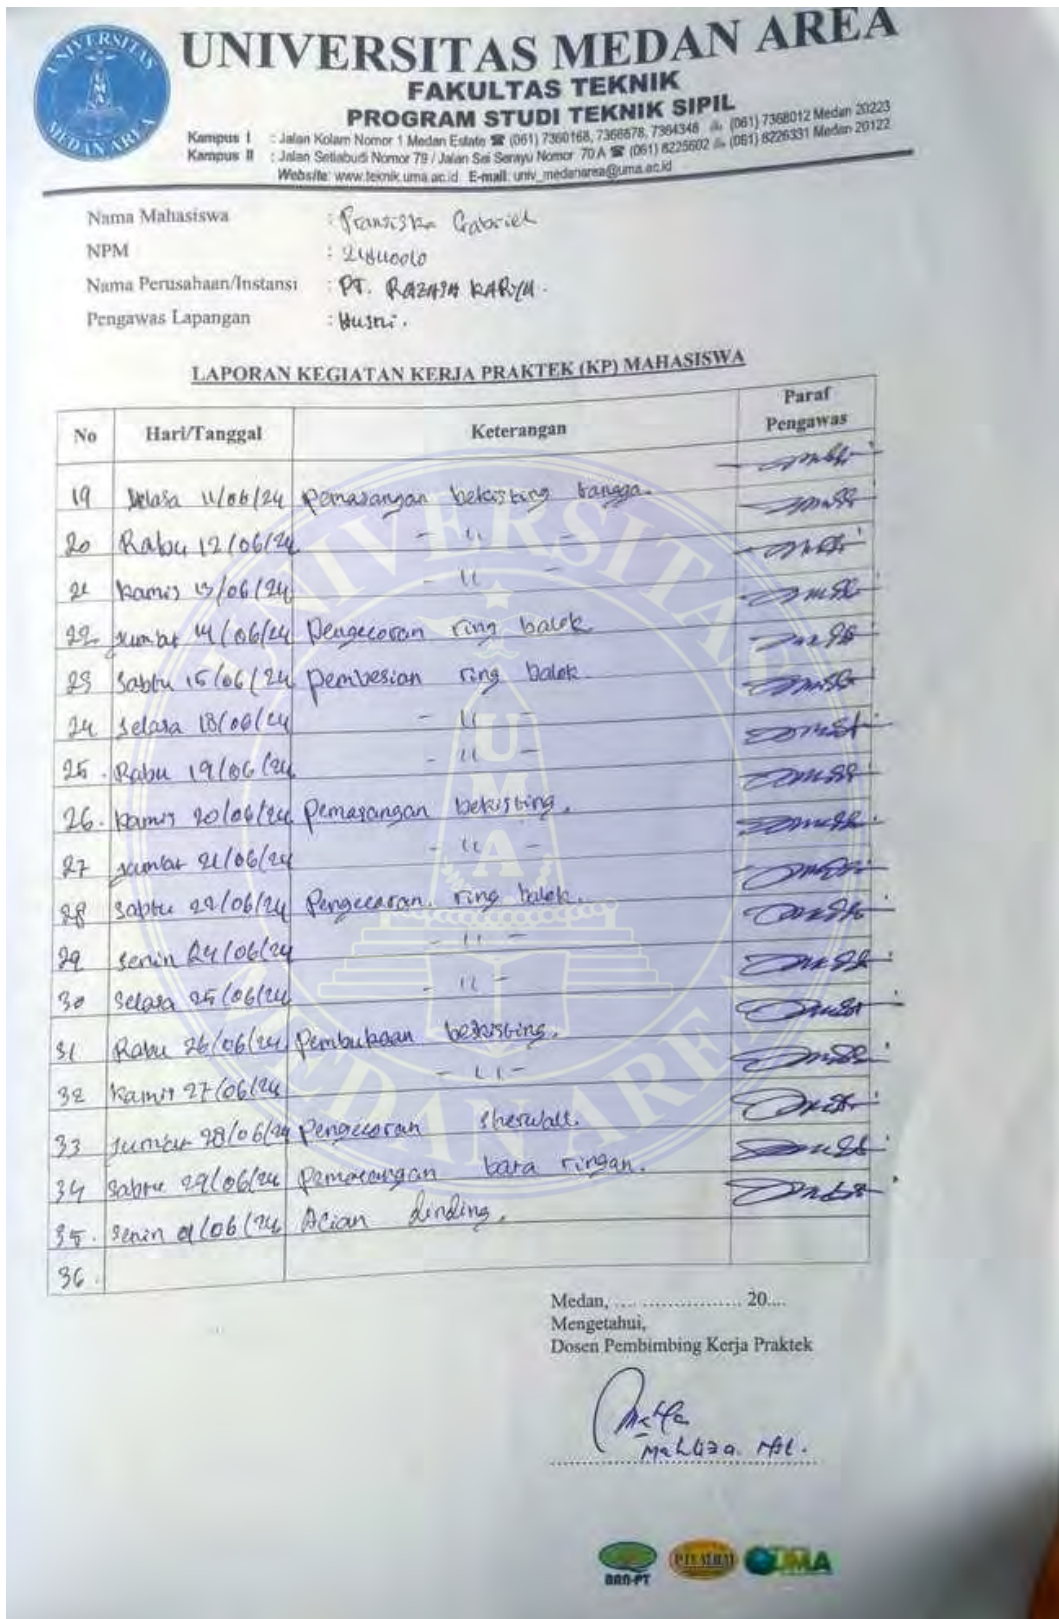 UNIVERSITAS MEDAN AREA
FAKULTAS TEKNIK
PROGRAM STUDI TEKNIK SIPIL
Kampus I : Jalan Kolam Nomor 1 Medan Estate ☎ (061) 7360168, 7366878, 7364348 (061) 7368012 Medan 20223
Kampus II : Jalan Setiabudi Nomor 79 / Jalan Sei Serayu Nomor 70 A ☎ (061) 8225602 (061) 8226331 Medan 20122
Website: www.teknik.uma.ac.id E-mail: univ_medanarea@uma.ac.id
Nama Mahasiswa : Fransiska Gabriel
NPM :
Nama Perusahaan/Instansi : PT. RAZASA KARYA.
Pengawas Lapangan : Husni.
LAPORAN KEGIATAN KERJA PRAKTEK (KP) MAHASISWA
No Hari/Tanggal Keterangan Paraf Pengawas
19 Selasa 11/06/24 Pemasangan bekisting tangga.
20 Rabu 12/06/24 - 11 -
21 Kamis 13/06/24 - 11 -
22. Jumat 14/06/24 Pengecoran ring balok
23 Sabtu 15/06/24 Pembesian ring balok
24 Selasa 18/06/24 - 11 -
25. Rabu 19/06/24 - 11 -
26. Kamis 20/06/24 Pemasangan bekisting.
27 Jumat 21/06/24 - 11 -
28 Sabtu 22/06/24 Pengecoran ring balok.
29 Senin 24/06/24 - 11 -
30 Selasa 25/06/24 - 11 -
31 Rabu 26/06/24 Pembukaan bekisting.
32 Kamis 27/06/24 - 11 -
33 Jumat 28/06/24 Pengecoran sherwall.
34 Sabtu 29/06/24 Pemasangan bata ringan.
35. Senin 01/06/24 Acian dinding.
36.
Medan, .... .................. 20....
Mengetahui,
Dosen Pembimbing Kerja Praktek
UNIVERSITAS MEDAN AREA
UMA
BAN-PT
UMA